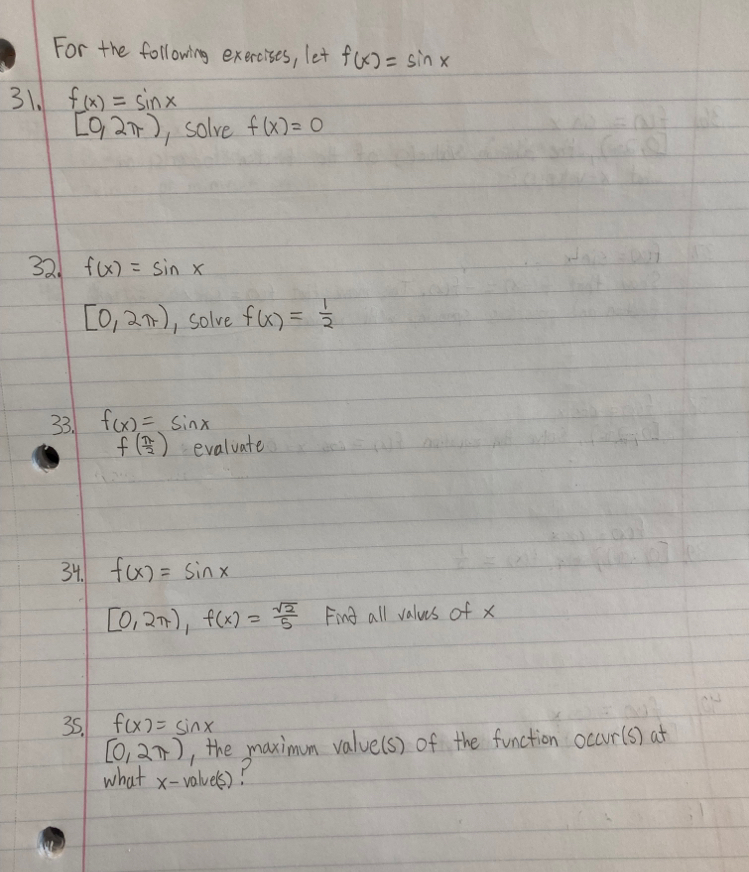 For the following exercises, let f(x) = sin x
31. f(x) = sinx
[0, 2π), solve f(x) = 0
32. f(x) = sin x
[0, 2π), solve f(x) = 1/2
33. f(x) = sinx
f(π/2) evaluate
34. f(x) = sinx
[0, 2π), f(x) = √2/5 Find all values of x
35. f(x) = sinx
[0, 2π), the maximum value(s) of the function occur(s) at
what x-value(s)?